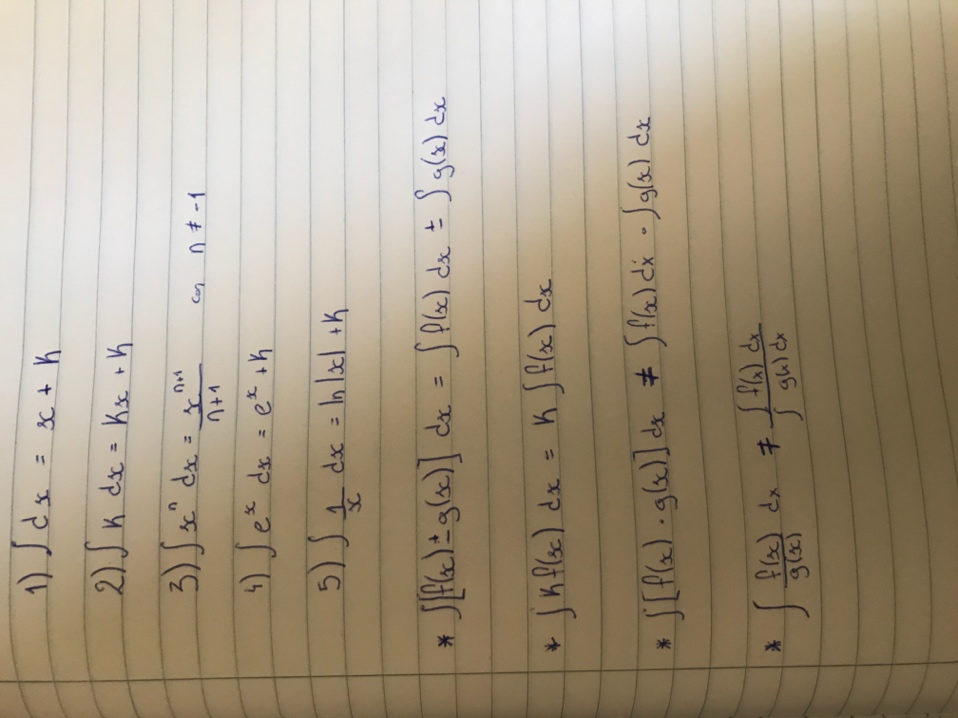 1) ∫ dx = x + k
2) ∫ k dx = kx + k
3) ∫ xⁿ dx = xⁿ⁺¹/n+1 con n ≠ -1
4) ∫ eˣ dx = eˣ + k
5) ∫ 1/x dx = ln |x| + k
* ∫ [f(x) ± g(x)] dx = ∫ f(x) dx ± ∫ g(x) dx
* ∫ k f(x) dx = k ∫ f(x) dx
* ∫ [f(x) · g(x)] dx ≠ ∫ f(x) dx · ∫ g(x) dx
* ∫ f(x)/g(x) dx ≠ ∫ f(x) dx/∫ g(x) dx